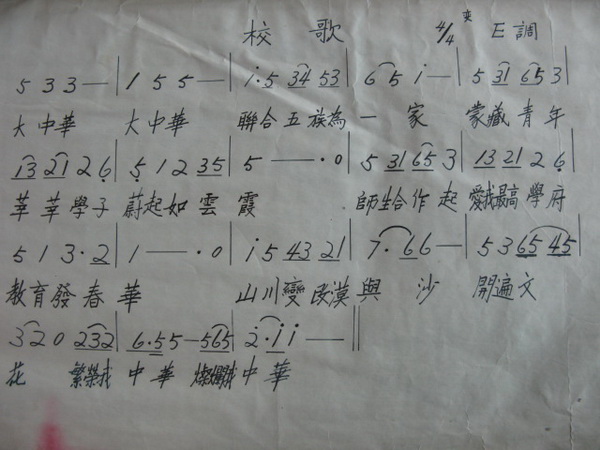 校歌 4/4 变E調
5 3 3 — | 1 5 5 — | i·5 34 53 | 6 5 i — | 5 31 65 3 |
大中華 大中華 聯合五族為一家 蒙藏青年
13 21 2 6 | 5 1 2 35 | 5 — — · 0 | 5 31 65 3 | 13 21 2 6 |
莘莘學子 蔚起如雲霞 師生合作起 愛我最高學府
5 1 3·2 | 1 — — · 0 | i 5 43 21 | 7·6 6 — | 5 3 65 45 |
教育發春華 山川變 漠與沙 開遍文
3 2 0 232 | 6·5 5 — 565 | 2·i i — ||
花 繁榮我中華 燦爛我中華